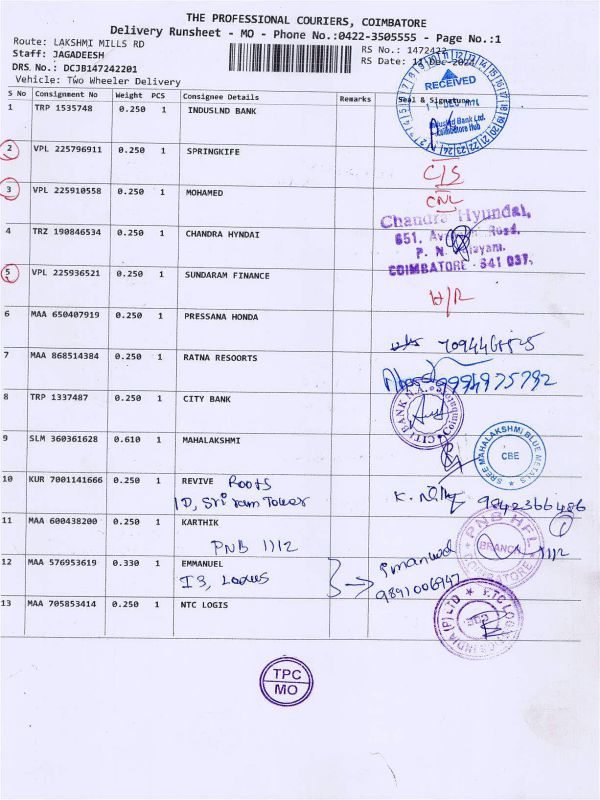 THE PROFESSIONAL COURIERS, COIMBATORE
Delivery Runsheet - MO - Phone No.:0422-3505555 - Page No.:1
Route: LAKSHMI MILLS RD
RS No.: 1472422
Staff: JAGADEESH
RS Date: 11-Dec-2024
DRS No.: DCJB147242201
Vehicle: Two Wheeler Delivery
S No Consignment No Weight PCS Consignee Details Remarks Seal & Signature
1 TRP 1535748 0.250 1 INDUSLND BANK
RECEIVED
Indusind Bank Ltd.
Coimbatore Hub
2 VPL 225796911 0.250 1 SPRINGKIFE
C/S
3 VPL 225910558 0.250 1 MOHAMED
CNL
4 TRZ 190846534 0.250 1 CHANDRA HYNDAI
Chandra Hyundai,
651, Road,
P. N.
COIMBATORE - 641 037.
5 VPL 225936521 0.250 1 SUNDARAM FINANCE
H/R
6 MAA 650407919 0.250 1 PRESSANA HONDA
7 MAA 868514384 0.250 1 RATNA RESOORTS
9994975792
8 TRP 1337487 0.250 1 CITY BANK
9 SLM 360361628 0.610 1 MAHALAKSHMI
SREE MAHALAKSHMI BLUE METALS
CBE
10 KUR 7001141666 0.250 1 REVIVE Roots
1D, Sri ram Tower
9842366486
11 MAA 600438200 0.250 1 KARTHIK
PNB 1112
PNB HFL
BRANCH
COIMBATORE
1112
12 MAA 576953619 0.330 1 EMMANUEL
I3, Lotus
9891006947
13 MAA 705853414 0.250 1 NTC LOGIS
TPC
MO